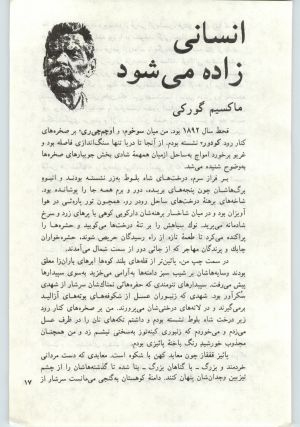 انسانی
زاده می‌شود
ماکسیم گورکی
قحط سال ۱۸۹۲ بود. من میان سوخوم، و اوچم‌چی‌ری، بر صخره‌های
کنار رود کودور، نشسته بودم. از آنجا تا دریا تنها سنگ‌اندازی فاصله بود و
غریو برخورد امواج به‌ساحل ازمیان همهمهٔ شادی بخش جویبارهای صخره‌ها
به‌وضوح شنیده می‌شد.
بر فراز سرم، درخت‌های شاه بلوط به‌زر نشسته بودند و انبوه
برگ‌هاشان چون پنجه‌های بریده، دور و برم همه جا را پوشانده بود.
شاخه‌های برهنهٔ درخت‌های ساحل رودرو، همچون تور پاروشی در هوا
آویزان بود و در میان شاخسار برهنه‌شان دارکوبی کوهی با پرهای زرد و سرخ
شادمانه می‌پرید. نوك سیاهش را بر تنهٔ درخت‌ها می‌کوبید و حشره‌ها را
پراکنده می‌کرد تا طعمهٔ تازه از راه رسیدگان حریص شوند، حشره‌خواران
چابك و پرندگان مهاجر که از جائی دور از سمت شمال می‌آمدند.
در سمت چپ من، پائیز از قله‌های بلند کوه‌ها ابرهای باران‌زا معلق
بودند وسایه‌هاشان بر شیب سبز دامنه‌ها به‌آرامی می‌خزید به‌سوی سپیدارها
پیش می‌رفت. سپیدارهای تنومندی که حفره‌هائی نمناك‌شان سرشار از شهدی
سکرآور بود. شهدی که زنبوران عسل از شکوفه‌های بوته‌های آزالیا
برمی‌گیرند و در لانه‌های درختی‌شان می‌پرورند. من بر صخره‌های کنار رود
زیر درخت شاه بلوط نشسته بودم و داشتم تکه‌های نان را در ظرف عسل
می‌زدم و می‌خوردم که زنبوری کینه‌توز به‌سختی نیشم زد و من همچنان
مجذوب خورشید رنگ باختهٔ پائیزی بودم.
پائیز قفقاز چون معابد کهن با شکوه است. معابدی که دست مردانی
خردمند و بزرگ ـ با گناهان بزرگ ـ بنا شده تا گذشته‌هاشان را از چشم
تیزبین وجدان‌شان پنهان کنند. دامنهٔ کوهستان به‌گنجی می‌مانست سرشار از
۱۷